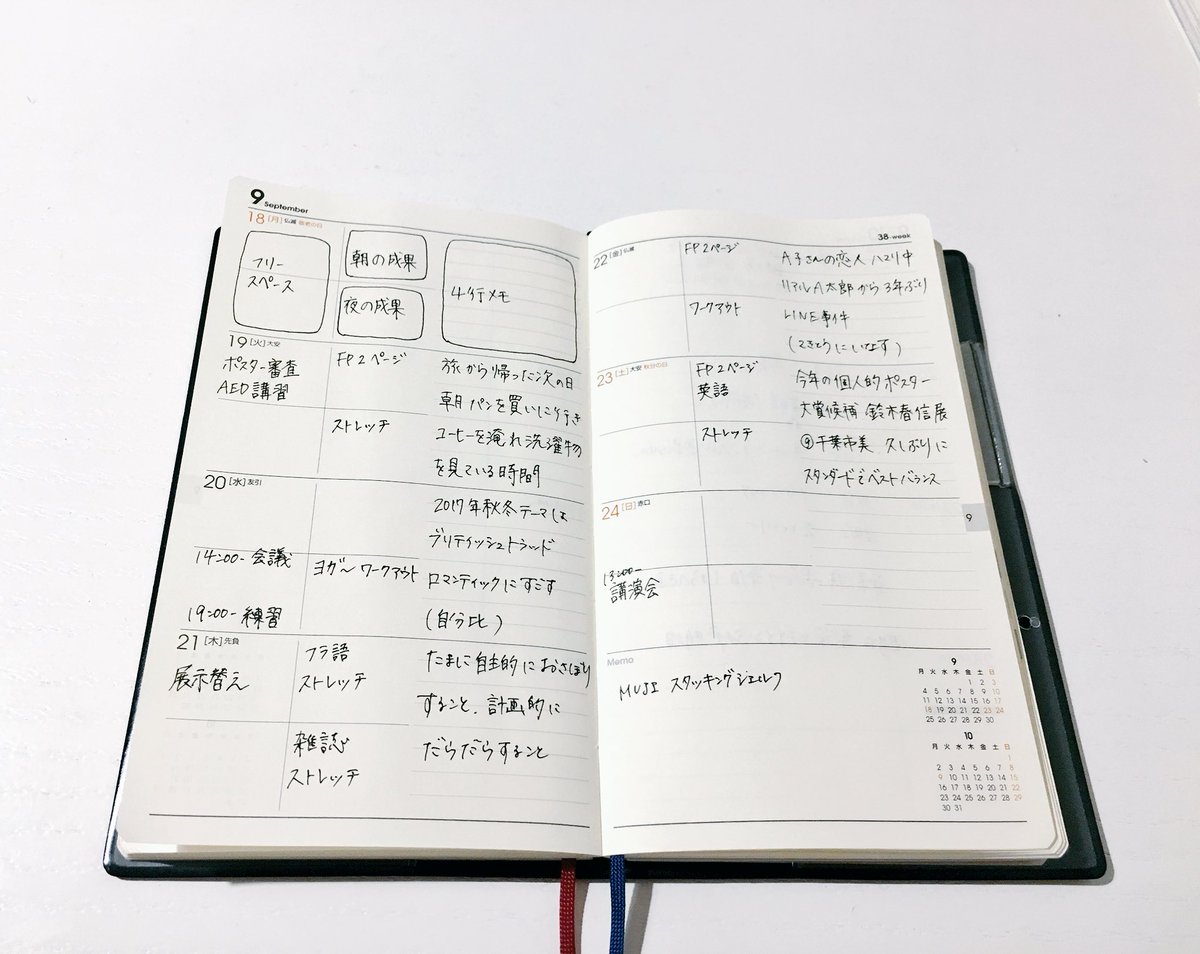 9 September
18 [月] 仏滅 敬老の日
フリー
スペース
朝の成果
夜の成果
4行メモ
19 [火] 大安
ポスター審査
AED講習
FP2ページ
ストレッチ
旅から帰った次の日
朝パンを買いに行き
コーヒーを淹れ洗濯物
を見ている時間
20 [水] 友引
14:00- 会議
19:00- 練習
ヨガ〜ワークアウト
2017年秋冬テーマは
ブリティッシュトラッド
ロマンティックにすごす
(自分比)
21 [木] 先負
展示替え
フラ語
ストレッチ
雑誌
ストレッチ
たまに自主的におさぼり
すること、計画的に
だらだらすること
38-week
22 [金] 仏滅
FP2ページ
ワークアウト
A子さんの恋人ハマり中
リアルA太郎から3年ぶり
LINE事件
23 [土] 大安 秋分の日
FP2ページ
英語
ストレッチ
今年の個人的ポスター
大賞候補 鈴木春信展
@千葉市美 久しぶりに
スタンダードでベストバランス
24 [日] 赤口
13:00-
講演会
9
Memo
MUJI スタッキングシェルフ
9
月 火 水 木 金 土 日
1 2 3
4 5 6 7 8 9 10
11 12 13 14 15 16 17
18 19 20 21 22 23 24
25 26 27 28 29 30
10
月 火 水 木 金 土 日
1
2 3 4 5 6 7 8
9 10 11 12 13 14 15
16 17 18 19 20 21 22
23 24 25 26 27 28 29
30 31